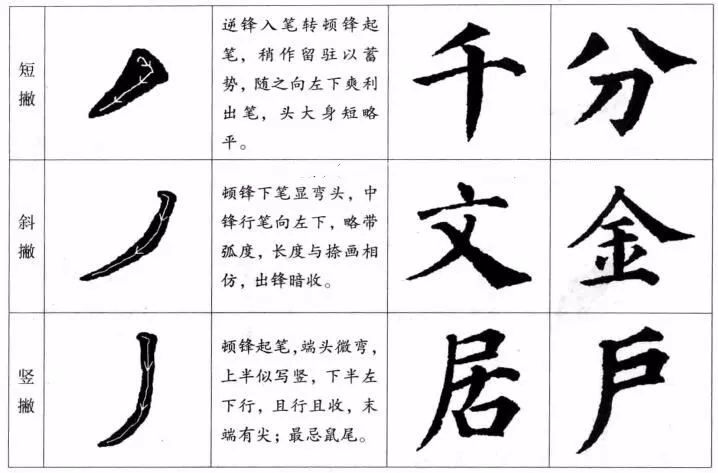 短撇
逆锋入笔转顿锋起
笔，稍作留驻以蓄
势，随之向左下爽利
出笔，头大身短略
平。
千
分
斜撇
顿锋下笔显弯头，中
锋行笔向左下，略带
弧度，长度与捺画相
仿，出锋暗收。
文
金
竖撇
顿锋起笔，端头微弯，
上半似写竖，下半左
下行，且行且收，末
端有尖；最忌鼠尾。
居
户